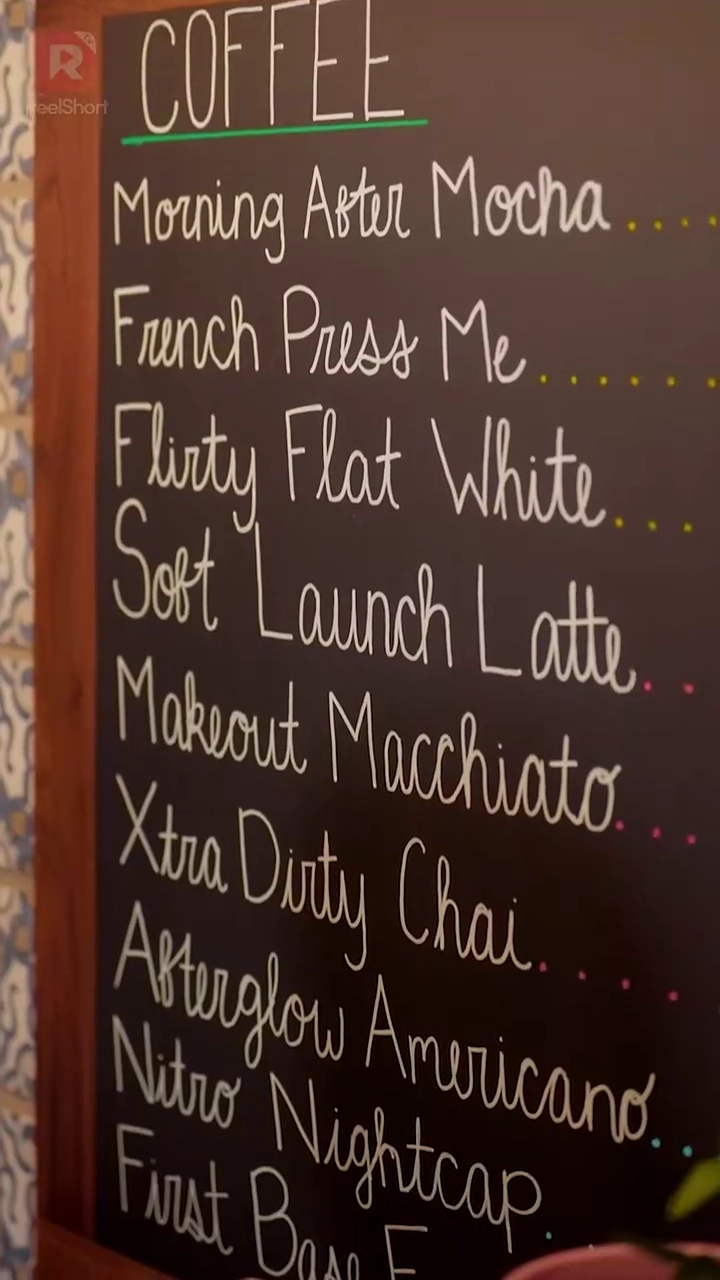 COFFEE
Morning After Mocha....
French Press Me......
Flirty Flat White...
Soft Launch Latte..
Makeout Macchiato...
Xtra Dirty Chai....
Afterglow Americano..
Nitro Nightcap.
First Base
ReelShort